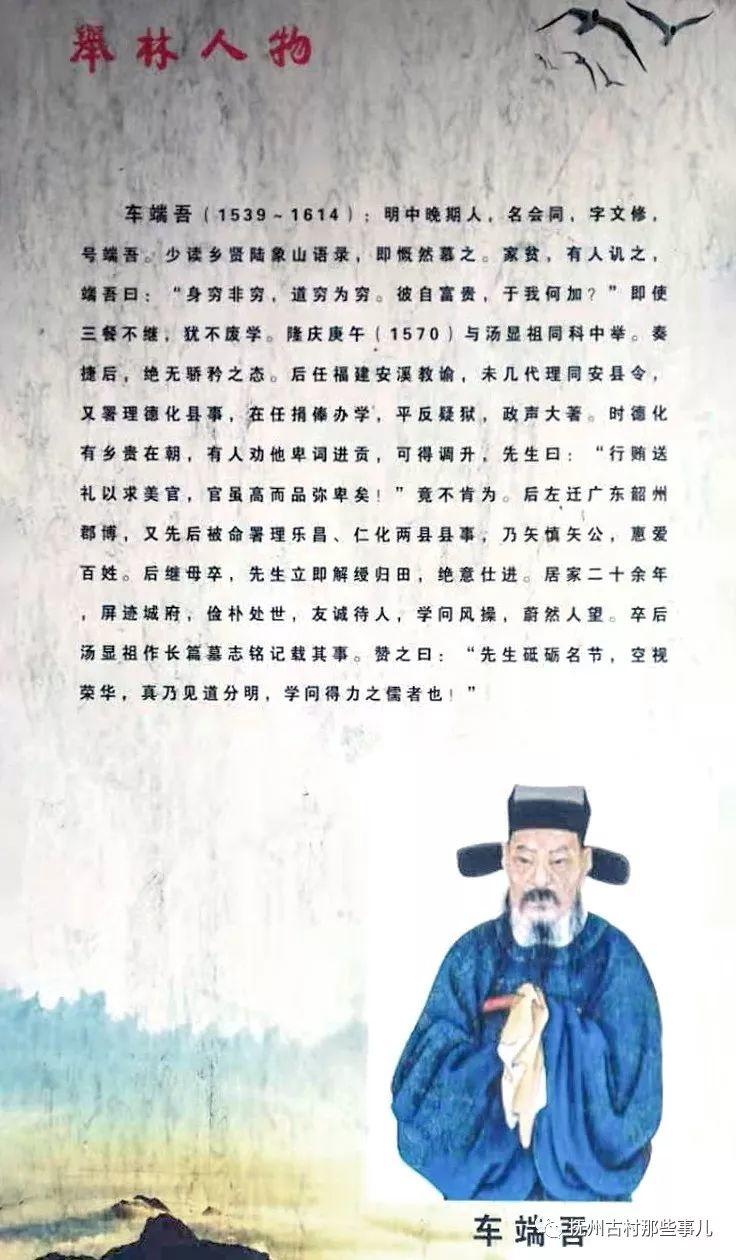 舉林人物
车端吾（1539~1614）；明中晚期人，名会同，字文修，
号端吾。少读乡贤陆象山语录，即慨然慕之。家贫，有人讥之，
端吾曰：“身穷非穷，道穷为穷。彼自富贵，于我何加？”即使
三餐不继，犹不废学。隆庆庚午（1570）与汤显祖同科中举。奏
捷后，绝无骄矜之态。后任福建安溪教谕，未几代理同安县令，
又署理德化县事，在任捐俸办学，平反疑狱，政声大著。时德化
有乡贵在朝，有人劝他卑词进贡，可得调升，先生曰：“行贿送
礼以求美官，官虽高而品弥卑矣！”竟不肯为。后左迁广东韶州
郡博，又先后被命署理乐昌、仁化两县县事，乃矢慎矢公，惠爱
百姓。后继母卒，先生立即解绶归田，绝意仕进。居家二十余年
，屏迹城府，俭朴处世，友诚待人，学问风操，蔚然人望。卒后
汤显祖作长篇墓志铭记载其事。赞之曰：“先生砥砺名节，空视
荣华，真乃见道分明，学问得力之儒者也！”
车端吾
抚州古村那些事儿